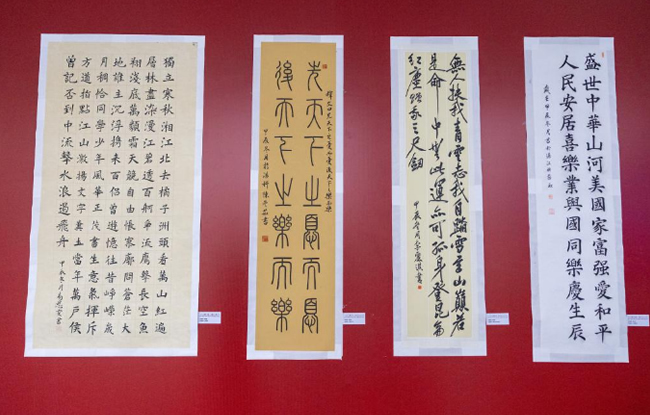 獨立寒秋湘江北去橘子洲頭看萬山紅遍
層林盡染漫江碧透百舸爭流鷹擊長空魚
翔淺底萬類霜天競自由悵寥廓問蒼茫大
地誰主沉浮攜來百侶曾遊憶往昔崢嶸歲
月稠恰同學少年風華正茂書生意氣揮斥
方遒指點江山激揚文字糞土當年萬戶侯
曾記否到中流擊水浪遏飛舟
甲辰冬月
先天下之憂而憂
後天下之樂而樂
甲辰冬月
無人扶我青雲志我自踏雪至山巔若
是命中無此運亦可孤身登昆侖
紅塵贈我三尺劍
甲辰冬月
盛世中華山河美國家富强愛和平
人民安居喜樂業與國同樂慶生辰
歲在甲辰冬月書於湛江